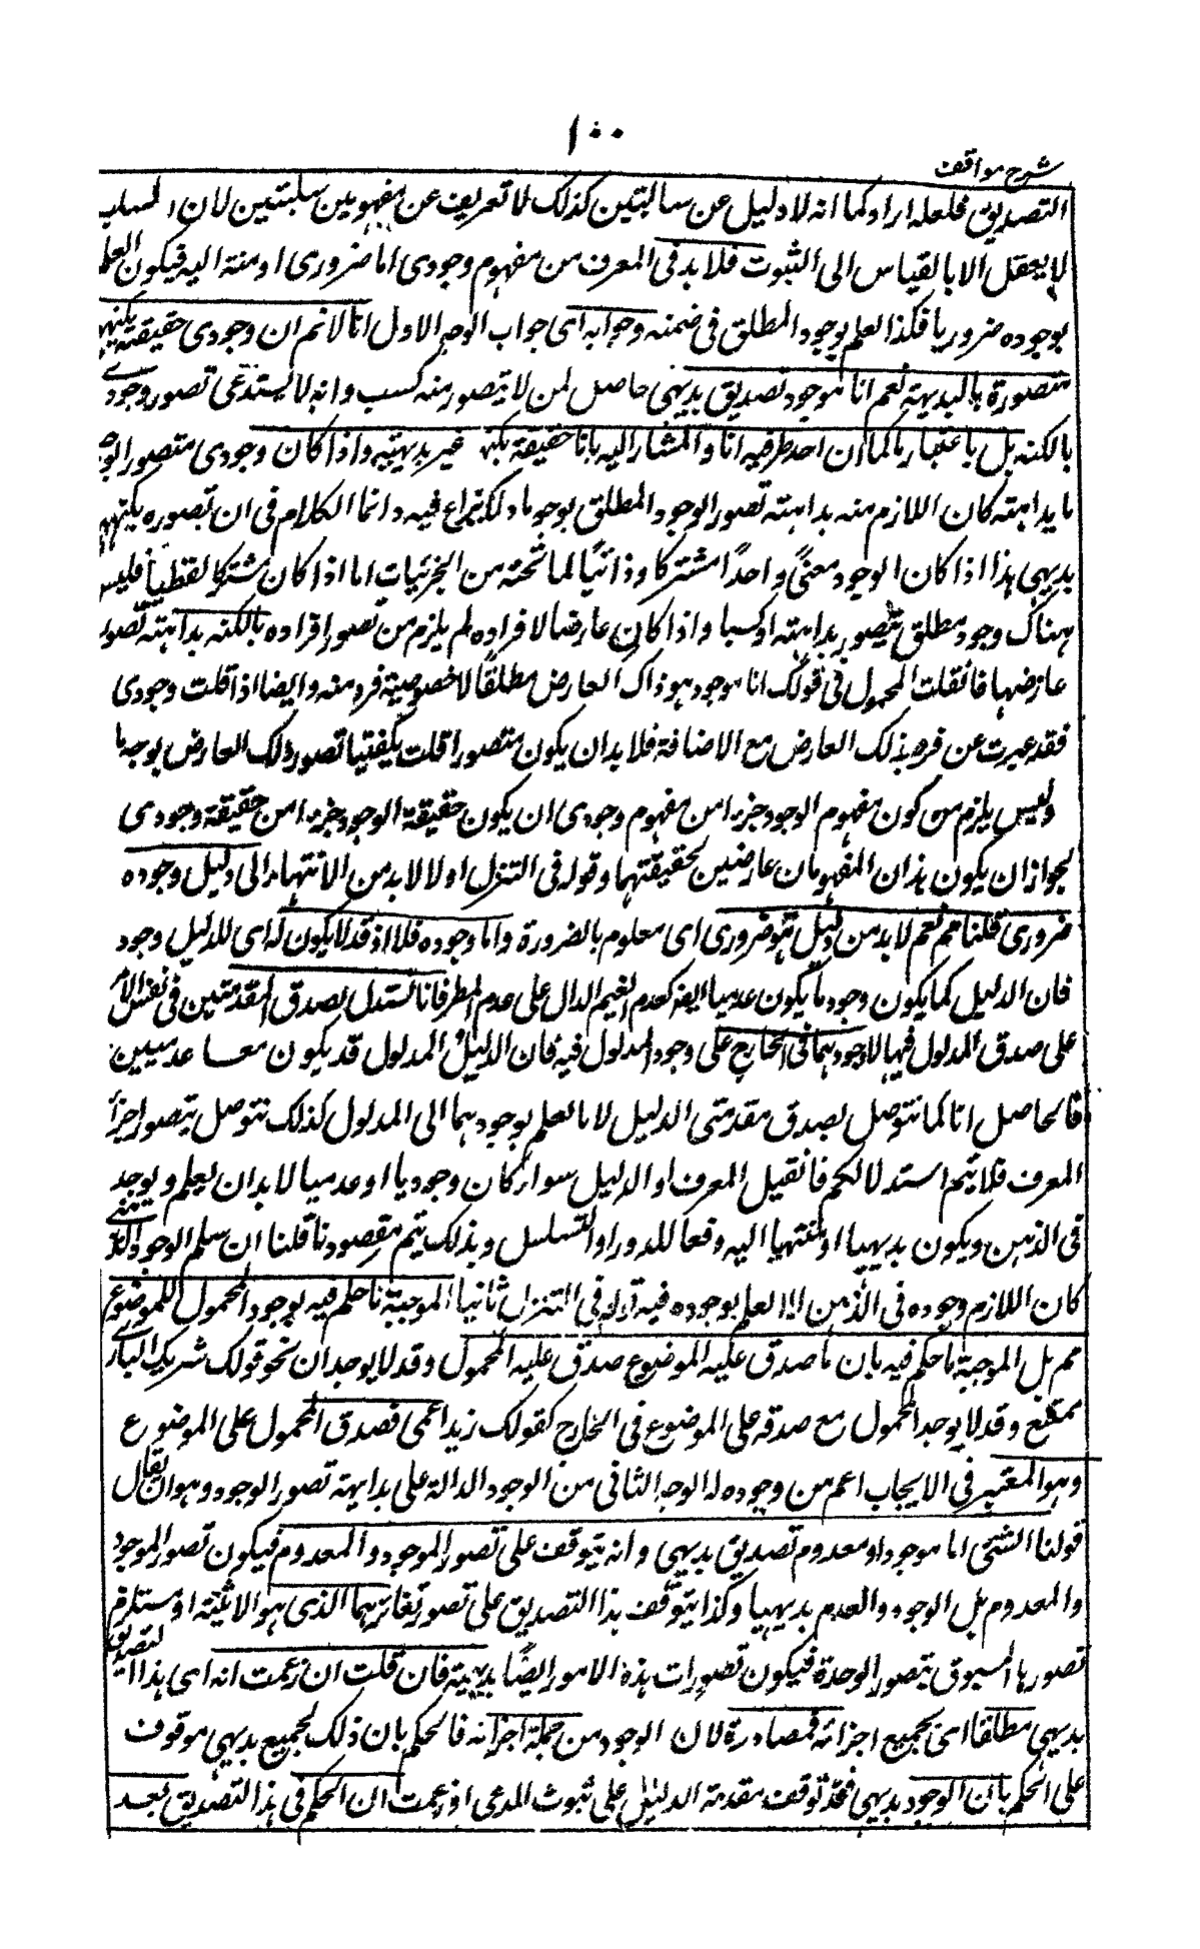 ١٠٠
شرح مواقف
التصديق فلعله اراد كما انه لا دليل عن سالبتين كذلك لا تعريف عن مفهومين سلبتين لان السلب
لا يعقل الا بالقياس الى الثبوت فلا بد فى المعرف من مفهوم وجودى اما ضرورى او منته اليه فيكون العلم
بوجوده ضروريا فكذا العلم بوجود المطلق فى ضمنه وجوابه اى جواب الوجه الاول انا لا نم ان وجودى حقيقته بكنهه
متصورة بالبديهة نعم انا موجود تصديق بديهى حاصل لمن لا يتصور منه كسب وانه لا يستدعى تصور وجودى
بالكنه بل باعتبار ما كما ان احد طرفيه انا والمشار اليه بانا حقيقة بكنهه غير بديهية واذا كان وجودى متصورا بوجه
ما بداهته كان اللازم منه بداهته تصور الوجود المطلق بوجه ما ولا نزاع فيه وانما الكلام فى ان تصوره بكنهه
بديهى هذا اذا كان الوجود معنًى واحدًا مشتركا وذاتيًا لما تحته من الجزئيات اما اذا كان مشتركا لفظياً فليس
هناك وجود مطلق يتصور بداهته او كسبا واذا كان عارضا لافراده لم يلزم من تصور افراده بالكنه بداهته تصور
عارضها فان قلت المحمول فى قولك انا موجود هو ذاك العارض مطلقًا لا خصوصية فرد منه وايضا اذا قلت وجودى
فقد عبرت عن فرد بذلك العارض مع الاضافة فلا بد ان يكون متصورا قلت يكفينا تصور ذلك العارض بوجه ما
وليس يلزم من كون مفهوم الوجود جزءا من مفهوم وجودى ان يكون حقيقة الوجود جزءا من حقيقة وجودى
لجواز ان يكون هذان المفهومان عارضين لحقيقتهما وقوله فى التنزل اولا لا بد من الانتهاء الى دليل وجوده
ضرورى قلنا مم نعم لا بد من دليل هو ضرورى اى معلوم بالضرورة واما وجوده فلا اذ قد لا يكون له اى للدليل وجود
فان الدليل كما يكون وجوديا يكون عدميا ايضا كعدم الغيم الدال على عدم المطر فانا نستدل بصدق المقدمتين فى نفس الامر
على صدق المدلول فيها لا بوجودهما فى الخارج على وجود المدلول فيه فان الدليل والمدلول قد يكون معا عدميين
فالحاصل انا كما نتوصل بصدق مقدمتى الدليل لا بالعلم بوجودهما الى المدلول كذلك نتوصل بتصور اجزاء
المعرف فلا يتم استدلالكم فان قيل المعرف او الدليل سواء كان وجوديا او عدميا لا بد ان يعلم ويوجد
فى الذهن ويكون بديهيا او منتهيا اليه دفعا للدور او التسلسل وبذلك يتم مقصودنا قلنا ان سلم الوجود الذهنى
كان اللازم وجوده فى الذهن لا العلم بوجوده فيه قوله فى التنزل ثانيا الموجبة ما حكم فيه بوجود المحمول للموضوع
مم بل الموجبة ما حكم فيه بان ما صدق عليه الموضوع صدق عليه المحمول وقد لا يوجدان نحو قولك شريك البارى
ممتنع وقد لا يوجد المحمول مع صدقه على الموضوع فى الخارج كقولك زيد اعمى فصدق المحمول على الموضوع
وهو المعتبر فى الايجاب اعم من وجوده له الوجه الثانى من الوجوه الدالة على بداهة تصور الوجود وهو ان يقال
قولنا الشئ اما موجود او معدوم تصديق بديهى وانه يتوقف على تصور الموجود والمعدوم فيكون تصور الموجود
والمعدوم بل الوجود والعدم بديهيا وكذا يتوقف هذا التصديق على تصور تغايرهما الذى هو الاثنينة او مستلزم
تصورها المسبوق بتصور الوحدة فيكون تصورات هذه الامور ايضًا بديهية فان قلت ان زعمت انه اى هذا التصديق
بديهى مطلقا اى بجميع اجزائه فمصادرة لان الوجود من جملة اجزائه فالحكم بان ذلك الجميع بديهى موقوف
على الحكم بان الوجود بديهى فقد توقف مقدمة الدليل على ثبوت المدعى او زعمت ان الحكم فى هذا التصديق بعد